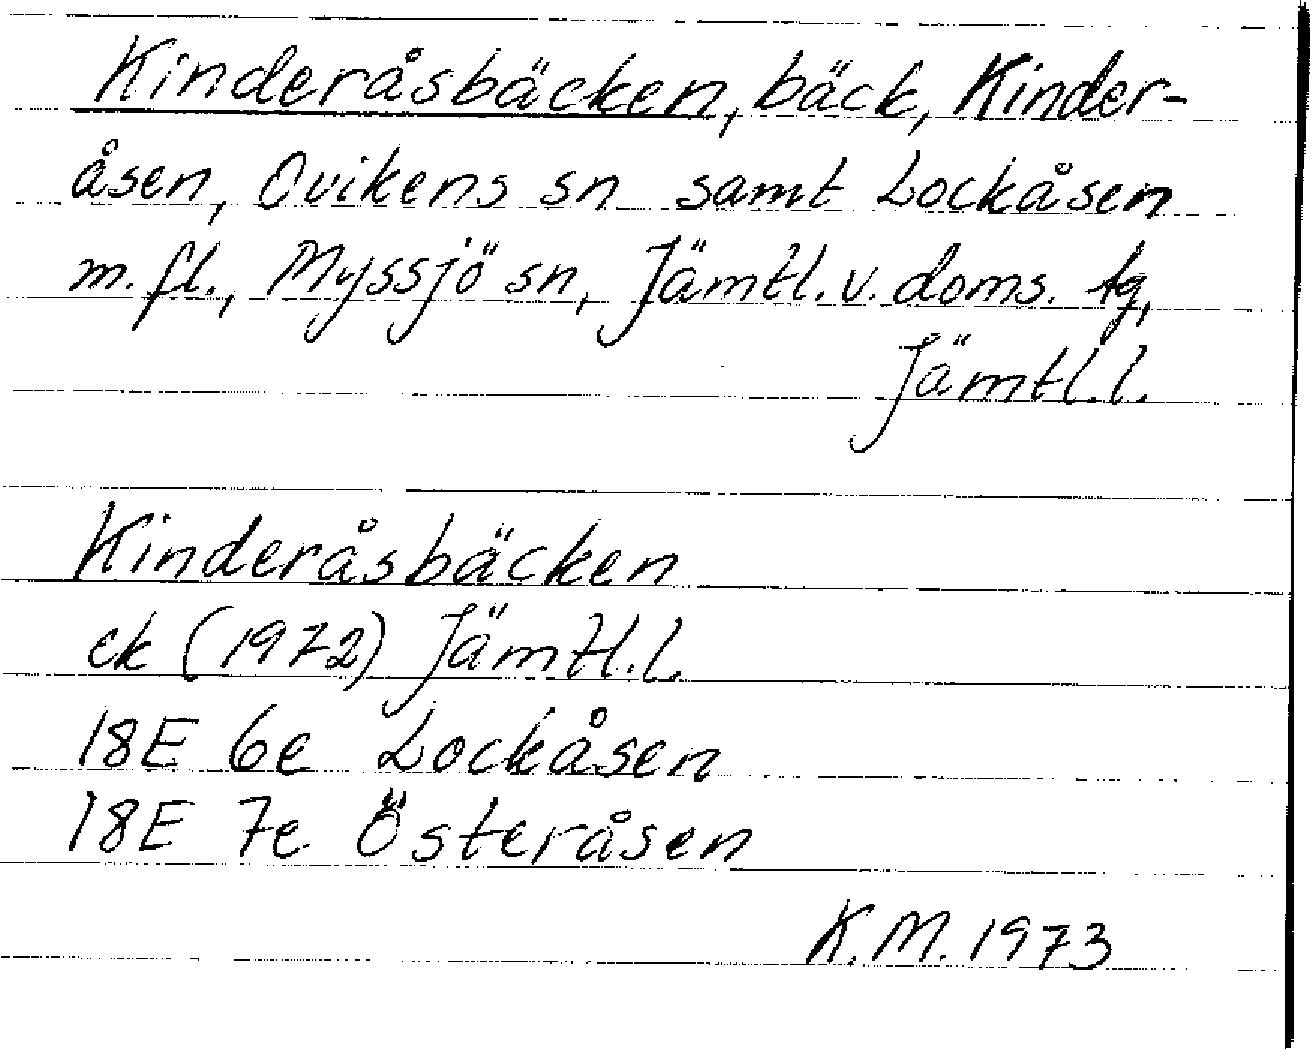 Kinderåsbäcken, bäck, Kinder-
åsen, Ovikens sn samt Lockåsen
m.fl., Myssjö sn, Jämtl. v. doms. tg,
Jämtl.l.
Kinderåsbäcken
ek (1972) Jämtl.l.
18E 6e Lockåsen
18E 7e Österåsen
K.M. 1973